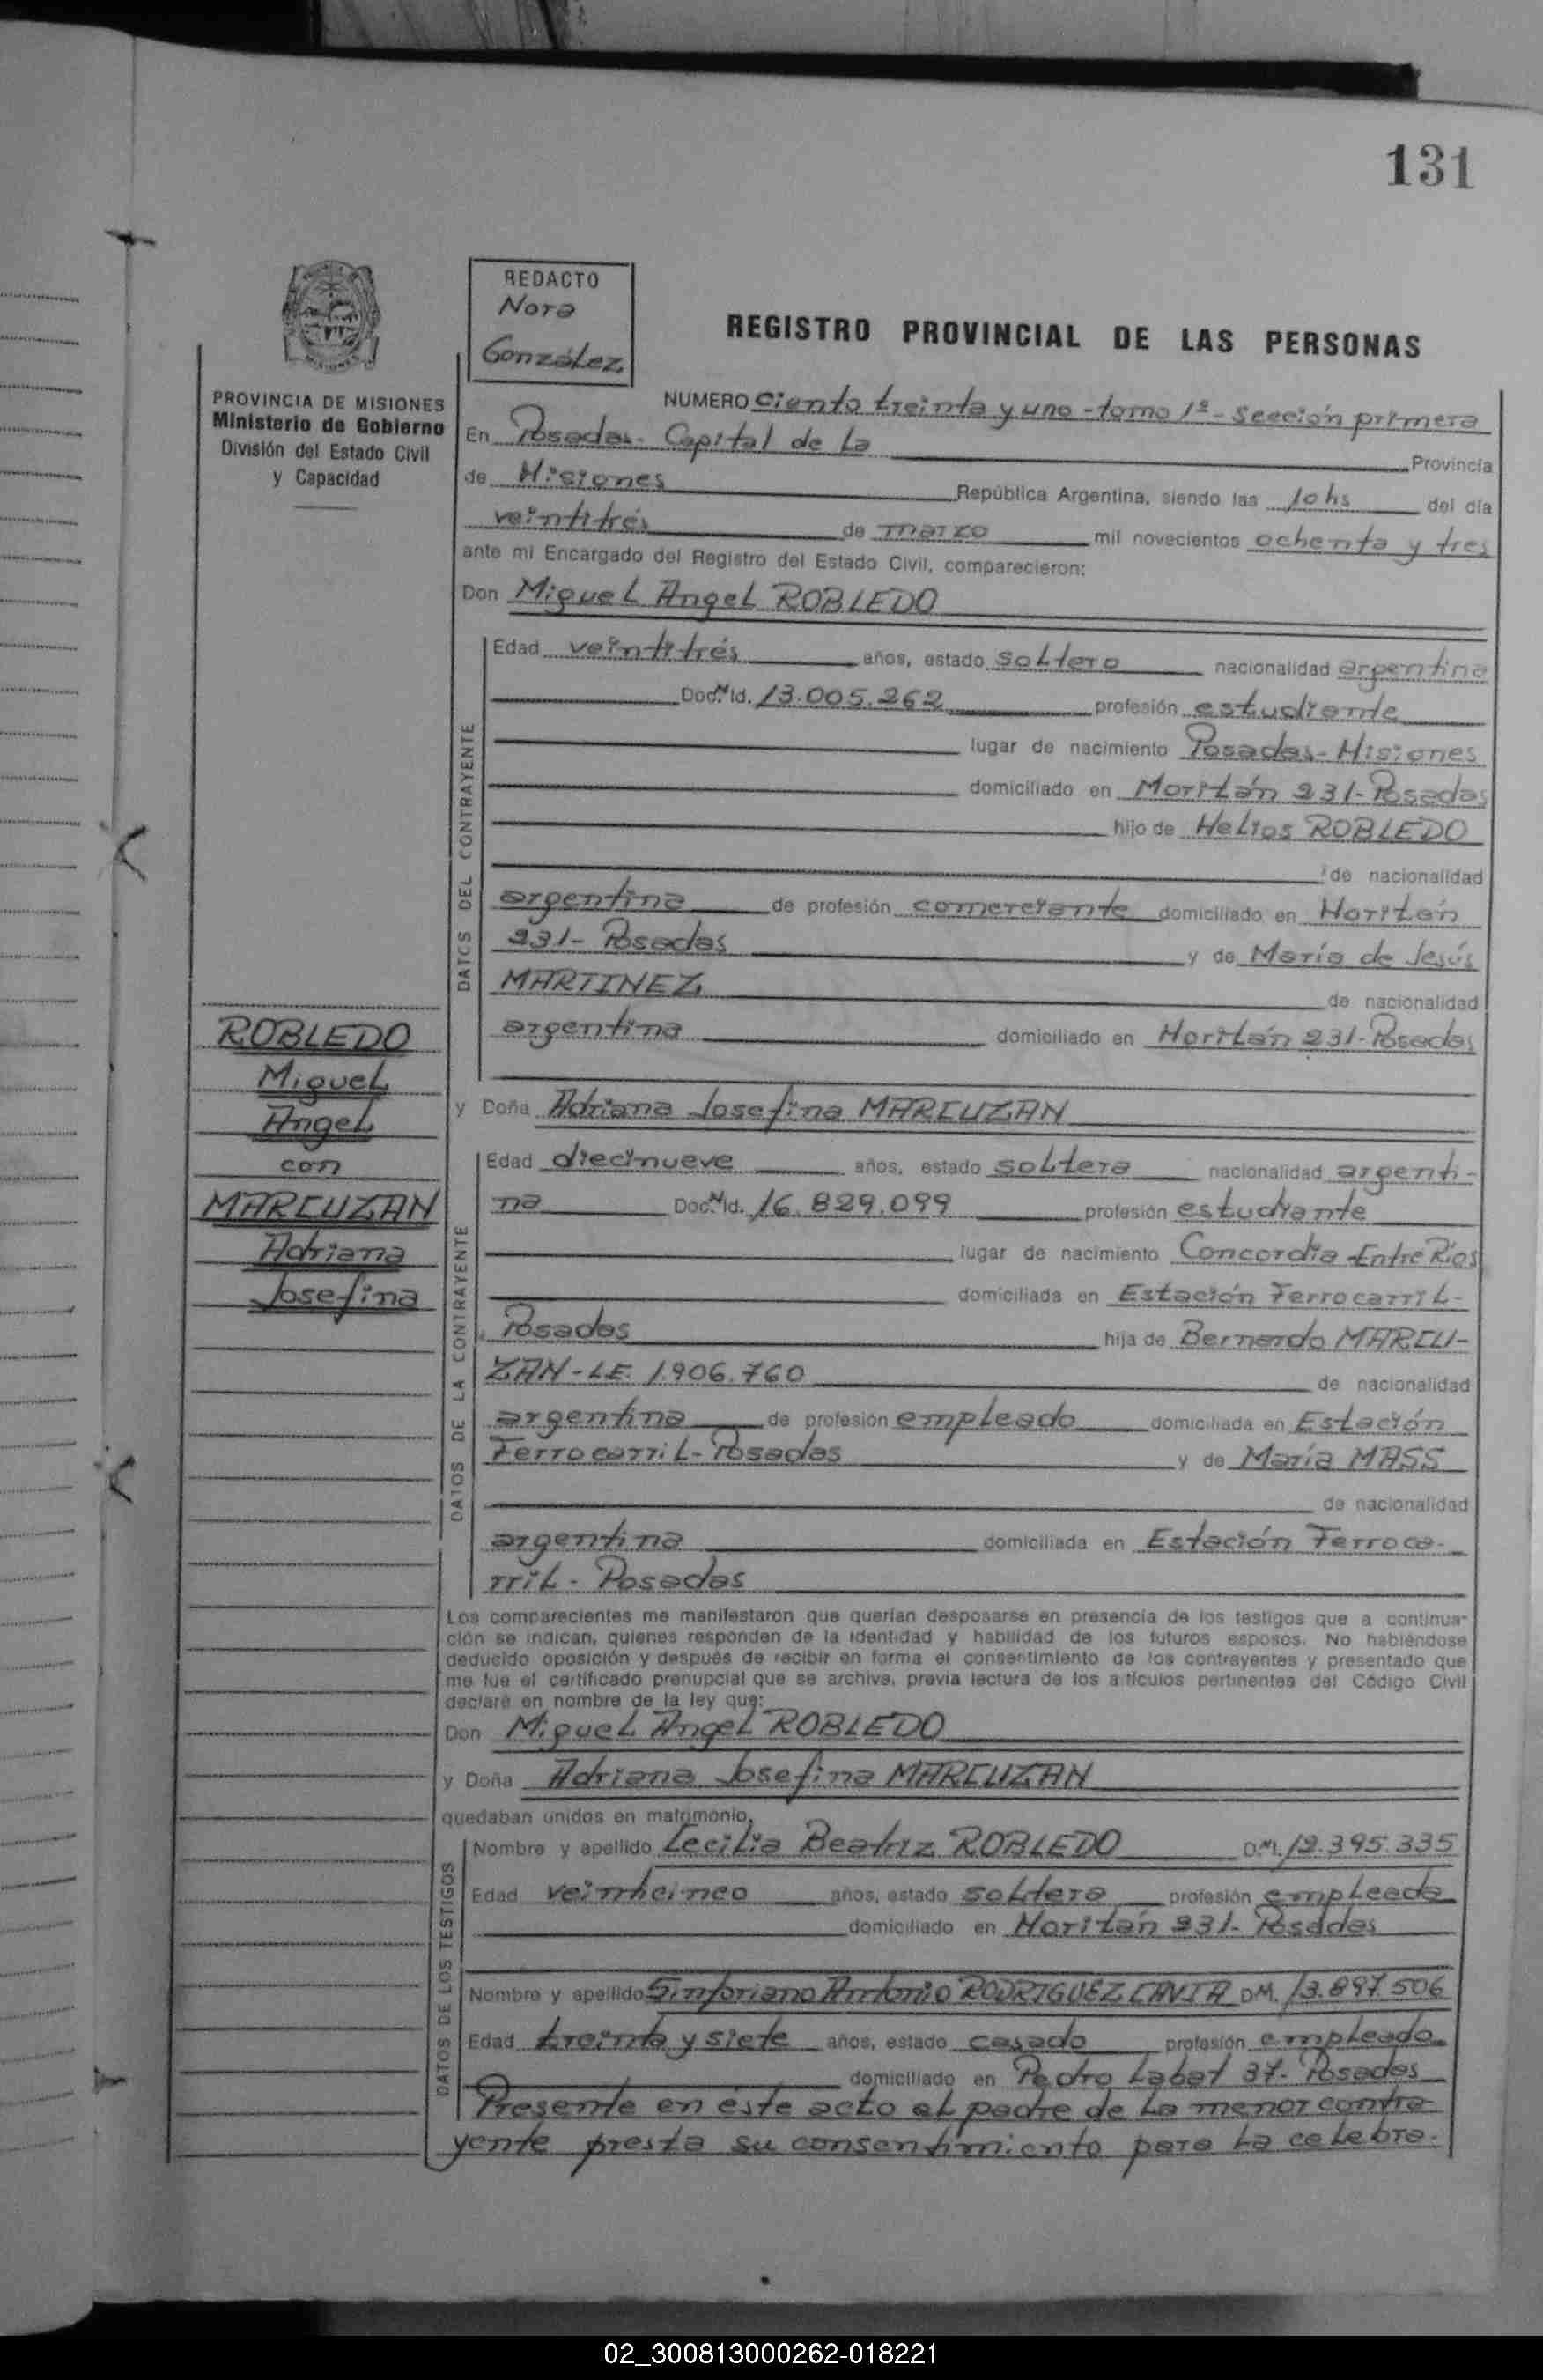 131
REDACTO
Nora
González
REGISTRO PROVINCIAL DE LAS PERSONAS
PROVINCIA DE MISIONES
Ministerio de Gobierno
División del Estado Civil
y Capacidad
NUMERO ciento treinta y uno - tomo 1º - sección primera
En Posadas - Capital de La Provincia
de Misiones República Argentina, siendo las 10 hs del día
veintitrés de marzo mil novecientos ochenta y tres
ante mi Encargado del Registro del Estado Civil, comparecieron:
Don Miguel Angel ROBLEDO
DATOS DEL CONTRAYENTE
Edad veintitrés años, estado soltero nacionalidad argentina
Doc. N Id. 13.005.262 profesión estudiante
lugar de nacimiento Posadas - Misiones
domiciliado en Moritán 231 - Posadas
hijo de Helios ROBLEDO
de nacionalidad
argentina de profesión comerciante domiciliado en Moritán
231 - Posadas y de María de Jesús
MARTINEZ de nacionalidad
argentina domiciliado en Moritán 231 - Posadas
ROBLEDO
Miguel
Angel
con
MARCUZAN
Adriana
Josefina
y Doña Adriana Josefina MARCUZAN
DATOS DE LA CONTRAYENTE
Edad diecinueve años, estado soltera nacionalidad argenti-
na Doc. N Id. 16.829.099 profesión estudiante
lugar de nacimiento Concordia - Entre Ríos
domiciliada en Estación Ferrocarril -
Posadas hija de Bernardo MARCU-
ZAN - L.E. 1.906.760 de nacionalidad
argentina de profesión empleado domiciliada en Estación
Ferrocarril - Posadas y de María MASS
de nacionalidad
argentina domiciliada en Estación Ferroca-
rril - Posadas
Los comparecientes me manifestaron que querían desposarse en presencia de los testigos que a continua-
ción se indican, quienes responden de la identidad y habilidad de los futuros esposos. No habiéndose
deducido oposición y después de recibir en forma el consentimiento de los contrayentes y presentado que
me fue el certificado prenupcial que se archiva, previa lectura de los artículos pertinentes del Código Civil
declaré en nombre de la ley que:
Don Miguel Angel ROBLEDO
y Doña Adriana Josefina MARCUZAN
quedaban unidos en matrimonio.
DATOS DE LOS TESTIGOS
Nombre y apellido Cecilia Beatriz ROBLEDO D.N.I. 12.395.335
Edad veinticinco años, estado soltera profesión empleada
domiciliado en Moritán 231 - Posadas
Nombre y apellido Sinforiano Antonio RODRIGUEZ CAVIA D.M. 13.897.506
Edad treinta y siete años, estado casado profesión empleado
domiciliado en Pedro Labat 37 - Posadas
Presente en éste acto el padre de la menor contra-
yente presta su consentimiento para la celebra-
02_300813000262-018221